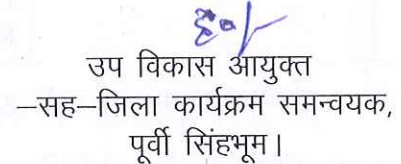 उप विकास आयुक्त
–सह–जिला कार्यक्रम समन्वयक,
पूर्वी सिंहभूम।